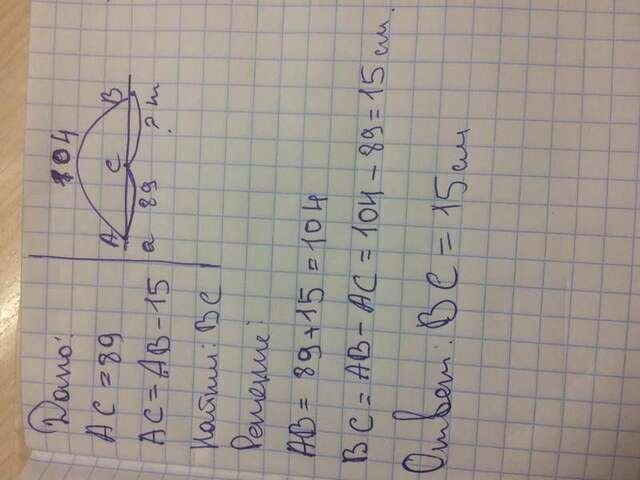 Дано:
AC = 89
AC = AB - 15
Найти: BC
104
A C B
a 89 ? m
Решение:
AB = 89 + 15 = 104
BC = AB - AC = 104 - 89 = 15 см.
Ответ: BC = 15 см